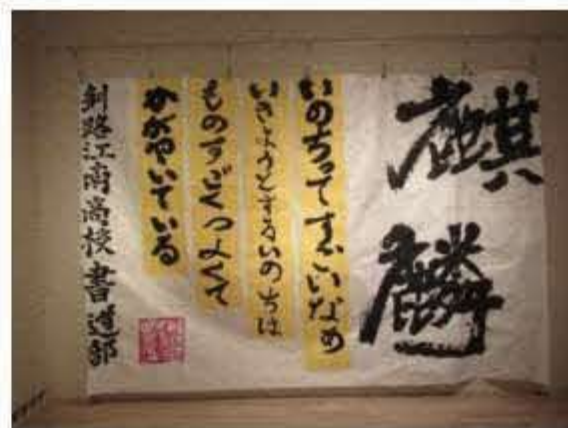 麒麟
いのちってすごいなあ
いきようとするいのちは
ものすごくつよくて
かがやいている
釧路江南高校書道部